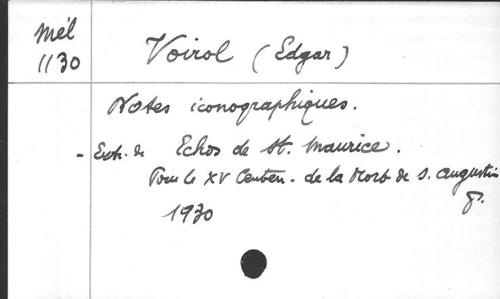 Mél
1130
Voirol (Edgar)
Notes iconographiques.
- Extr. de Echos de St. Maurice.
Pour le XV Centen. de la Mort de S. Augustin
1930